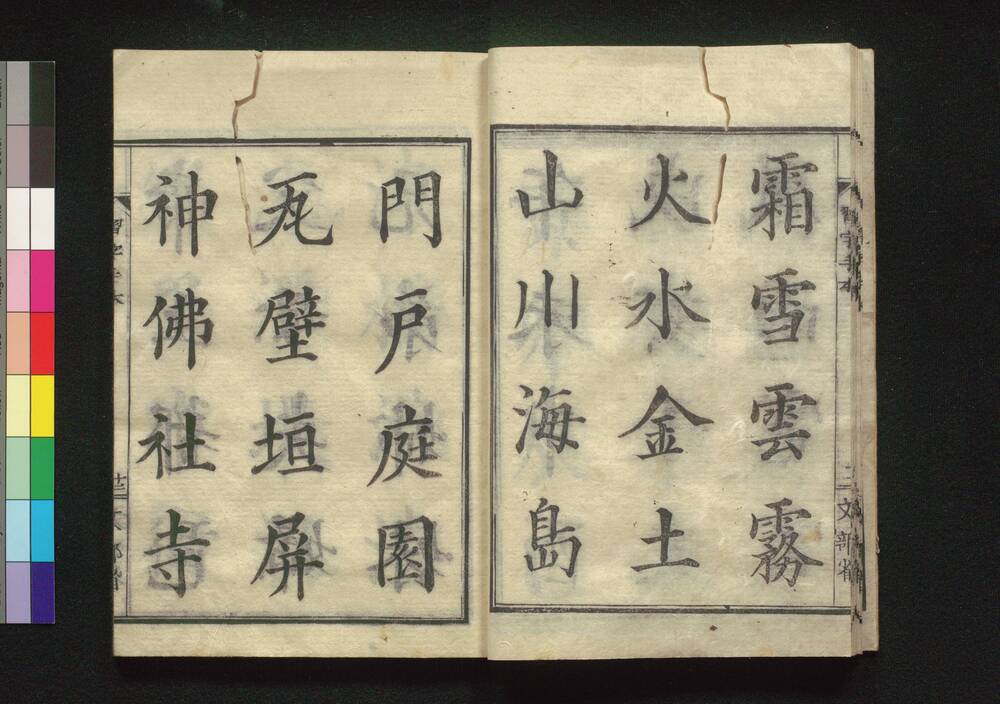 霜雪雲霧
火水金土
山川海島
門戸庭園
瓦壁垣屏
神佛社寺
習字手本
文部省